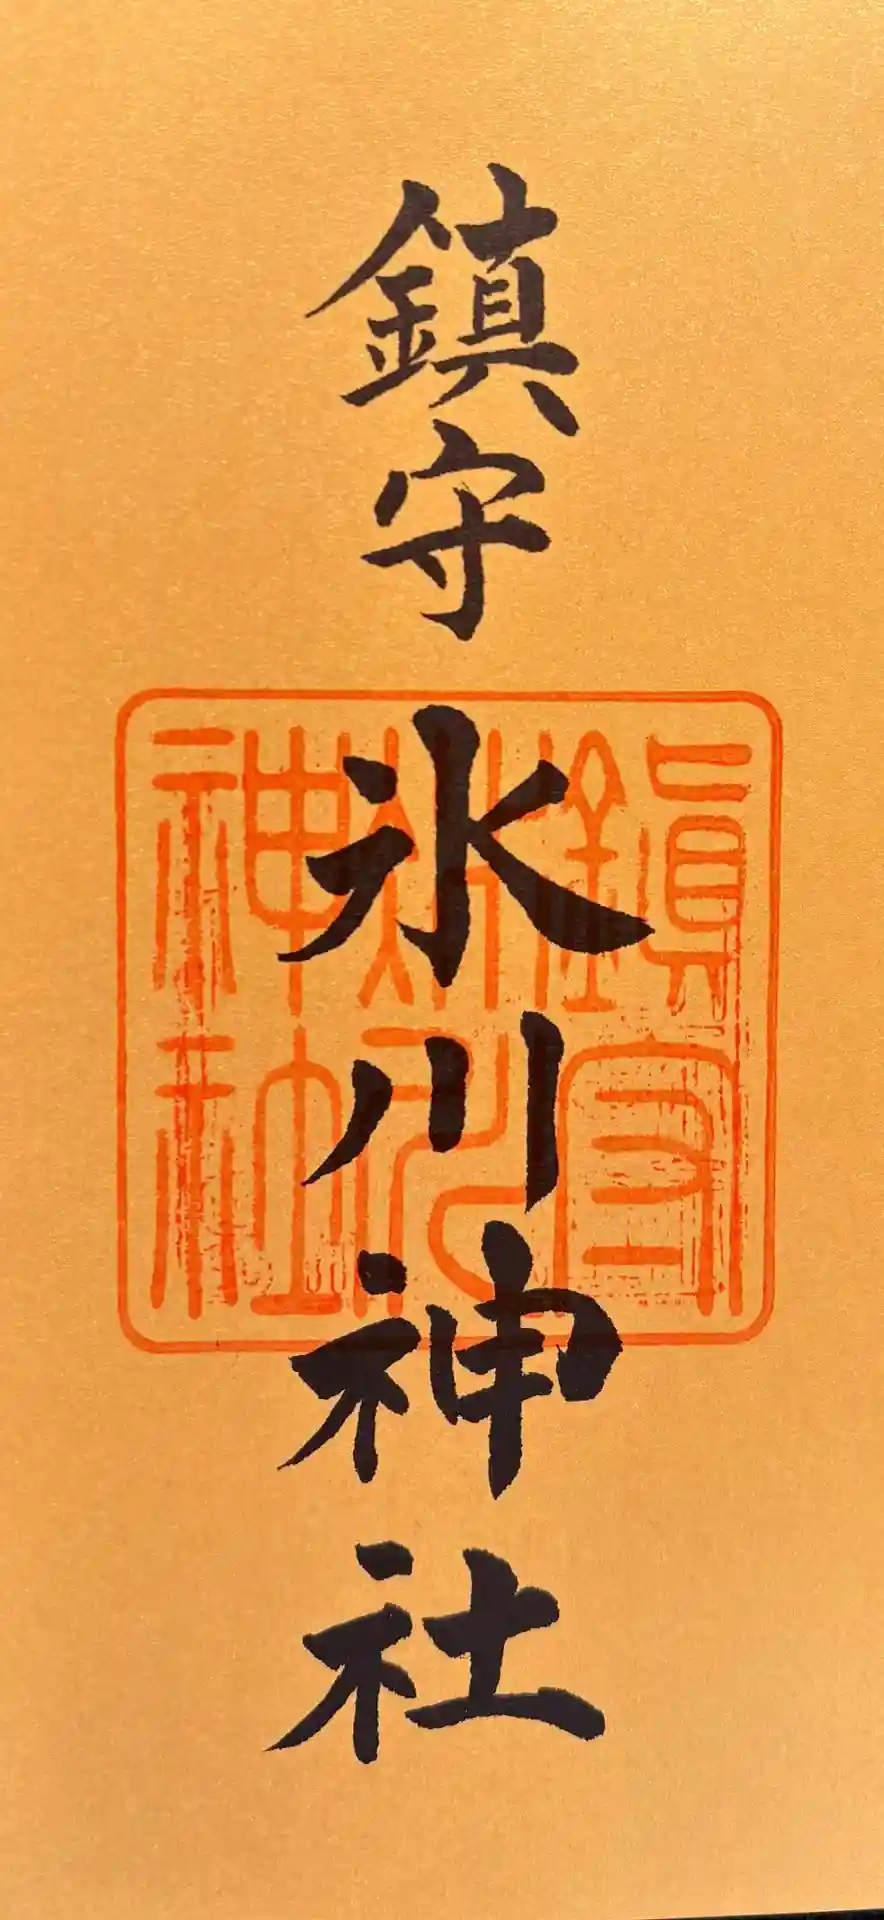 鎮守氷川神社
鎮守
氷川
神社